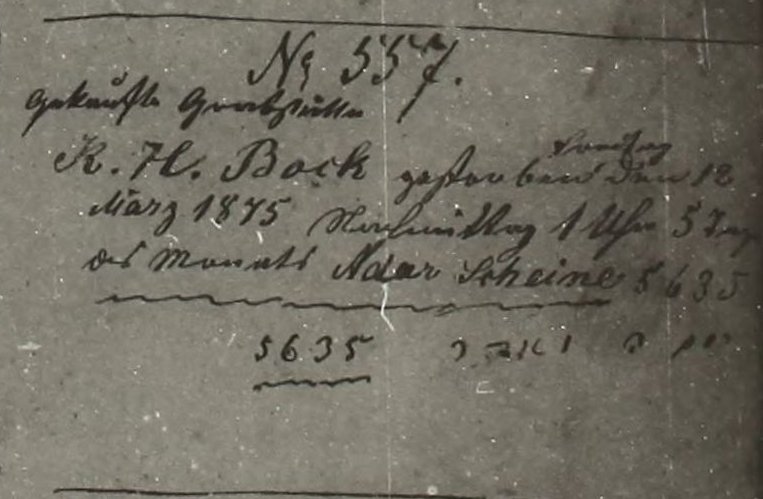 No 557.
gekaufte Grabstätte
Freitag
K. H. Bock gestorben den 12
März 1875 Nachmittag 1 Uhr 5 Tag
des Monats Adar Scheine 5635
5635